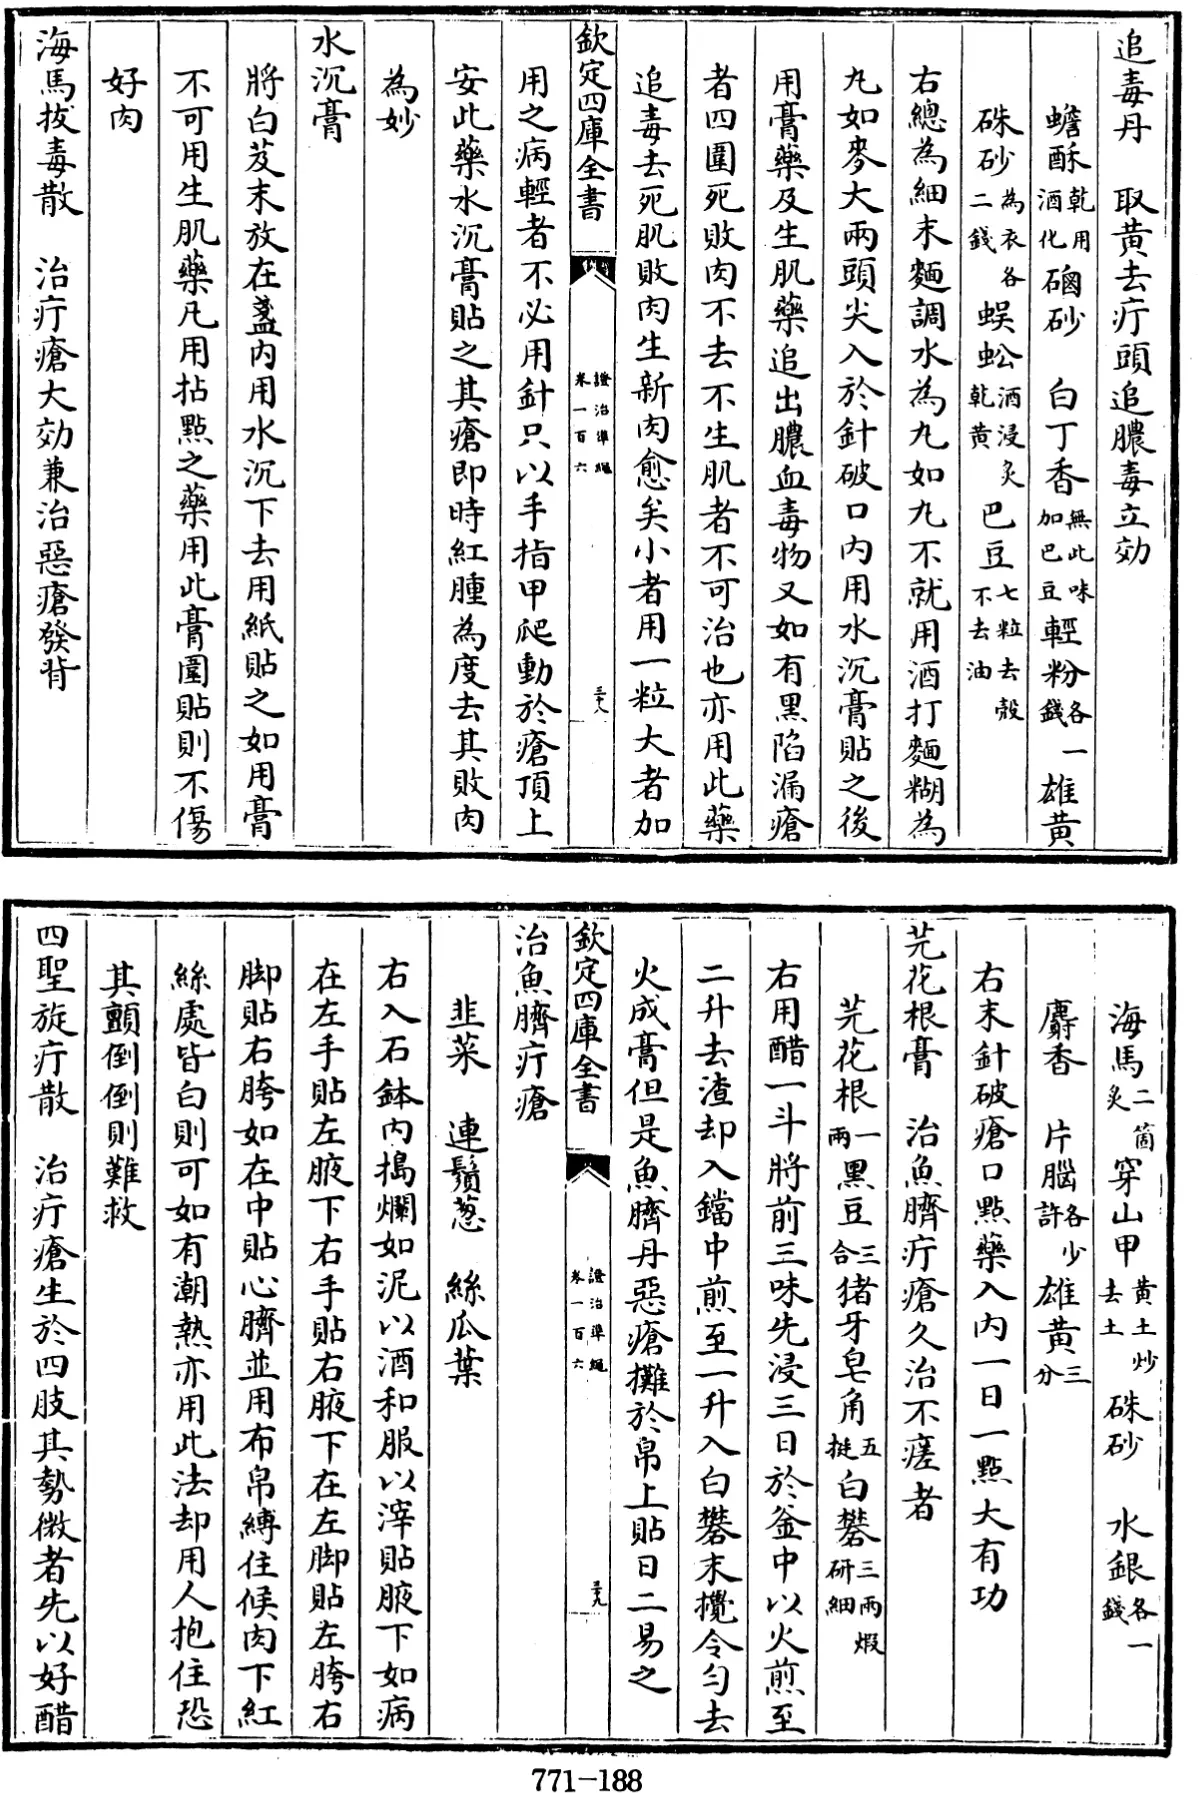 追毒丹　取黄去疔頭追膿毒立効
蟾酥乾用酒化　硇砂　白丁香無此味加巴豆　輕粉各一錢　雄黄
硃砂為衣各二錢　蜈蚣酒浸炙乾黄　巴豆七粒去殼不去油
右總為細末麵調水為丸如丸不就用酒打麵糊為
丸如麥大兩頭尖入於針破口内用水沉膏貼之後
用膏藥及生肌藥追出膿血毒物又如有黑陷漏瘡
者四圍死敗肉不去不生肌者不可治也亦用此藥
追毒去死肌敗肉生新肉愈矣小者用一粒大者加
欽定四庫全書　證治準繩卷一百六　三十八
用之病輕者不必用針只以手指甲爬動於瘡頂上
安此藥水沉膏貼之其瘡即時紅腫為度去其敗肉
為妙
水沉膏
將白芨末放在盞内用水沉下去用紙貼之如用膏
不可用生肌藥凡用拈點之藥用此膏圍貼則不傷
好肉
海馬拔毒散　治疔瘡大効兼治惡瘡發背
海馬二箇炙　穿山甲黄土炒去土　硃砂　水銀各一錢
麝香　片腦各少許　雄黄三分
右末針破瘡口點藥入内一日一點大有功
芫花根膏　治魚臍疔瘡久治不瘥者
芫花根一兩　黑豆三合　猪牙皂角五挺　白礬三兩煅研細
右用醋一斗將前三味先浸三日於釜中以火煎至
二升去渣却入鐺中煎至一升入白礬末攪令勻去
火成膏但是魚臍丹惡瘡攤於帛上貼日二易之
欽定四庫全書　證治準繩卷一百六　三十九
治魚臍疔瘡
韭菜　連鬚葱　絲瓜葉
右入石鉢内搗爛如泥以酒和服以滓貼腋下如病
在左手貼左腋下右手貼右腋下在左脚貼左胯右
脚貼右胯如在中貼心臍並用布帛縛住候肉下紅
絲處皆白則可如有潮熱亦用此法却用人抱住恐
其顫倒倒則難救
四聖旋疔散　治疔瘡生於四肢其勢微者先以好醋
771-188